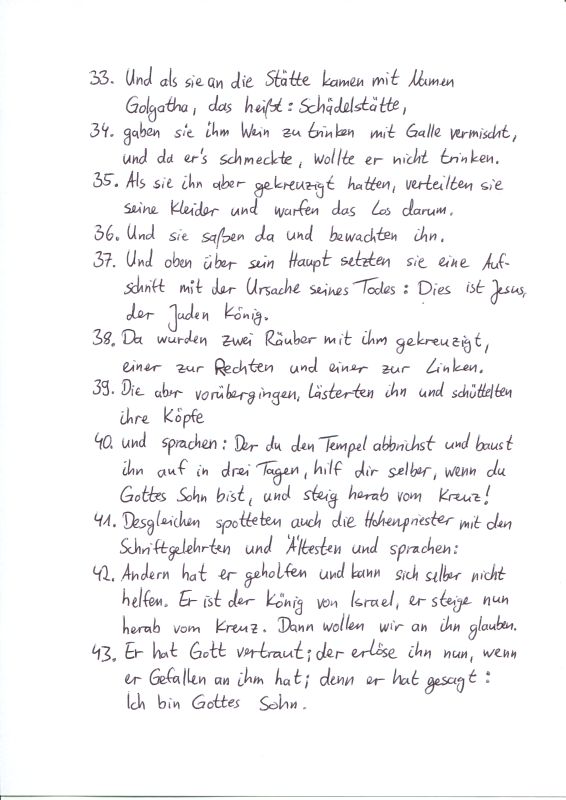 33. Und als sie an die Stätte kamen mit Namen
Golgatha, das heißt: Schädelstätte,
34. gaben sie ihm Wein zu trinken mit Galle vermischt,
und da er's schmeckte, wollte er nicht trinken.
35. Als sie ihn aber gekreuzigt hatten, verteilten sie
seine Kleider und warfen das Los darum.
36. Und sie saßen da und bewachten ihn.
37. Und oben über sein Haupt setzten sie eine Auf-
schrift mit der Ursache seines Todes: Dies ist Jesus,
der Juden König.
38. Da wurden zwei Räuber mit ihm gekreuzigt,
einer zur Rechten und einer zur Linken.
39. Die aber vorübergingen, lästerten ihn und schüttelten
ihre Köpfe
40. und sprachen: Der du den Tempel abbrichst und baust
ihn auf in drei Tagen, hilf dir selber, wenn du
Gottes Sohn bist, und steig herab vom Kreuz!
41. Desgleichen spotteten auch die Hohenpriester mit den
Schriftgelehrten und Ältesten und sprachen:
42. Andern hat er geholfen und kann sich selber nicht
helfen. Er ist der König von Israel, er steige nun
herab vom Kreuz. Dann wollen wir an ihn glauben.
43. Er hat Gott vertraut; der erlöse ihn nun, wenn
er Gefallen an ihm hat; denn er hat gesagt:
Ich bin Gottes Sohn.